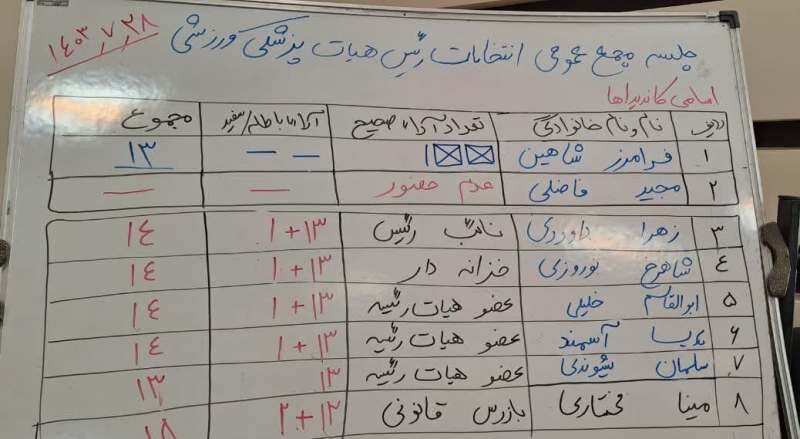 جلسه مجمع عمومی انتخابات رئیس هیات پزشکی ورزشی ۱۴۰۳,۷,۲۸
اسامی کاندیداها
ردیف نام و نام خانوادگی تعداد آراء صحیح آراء باطله/سفید مجموع
۱ فرامرز شاهین — — ۱۳
۲ مجید فاضلی عدم حضور — —
۳ زهرا داوودی نائب رئیس ۱۳+۱ ۱۴
۴ شاهرخ نوروزی خزانه دار ۱۳+۱ ۱۴
۵ ابوالقاسم خلیلی عضو هیات رئیسه ۱۳+۱ ۱۴
۶ پریسا آسمند عضو هیات رئیسه ۱۳+۱ ۱۴
۷ سلمان عضو هیات رئیسه ۱۳ ۱۳
۸ مینا مختاری بازرس قانونی ۱۳+۲